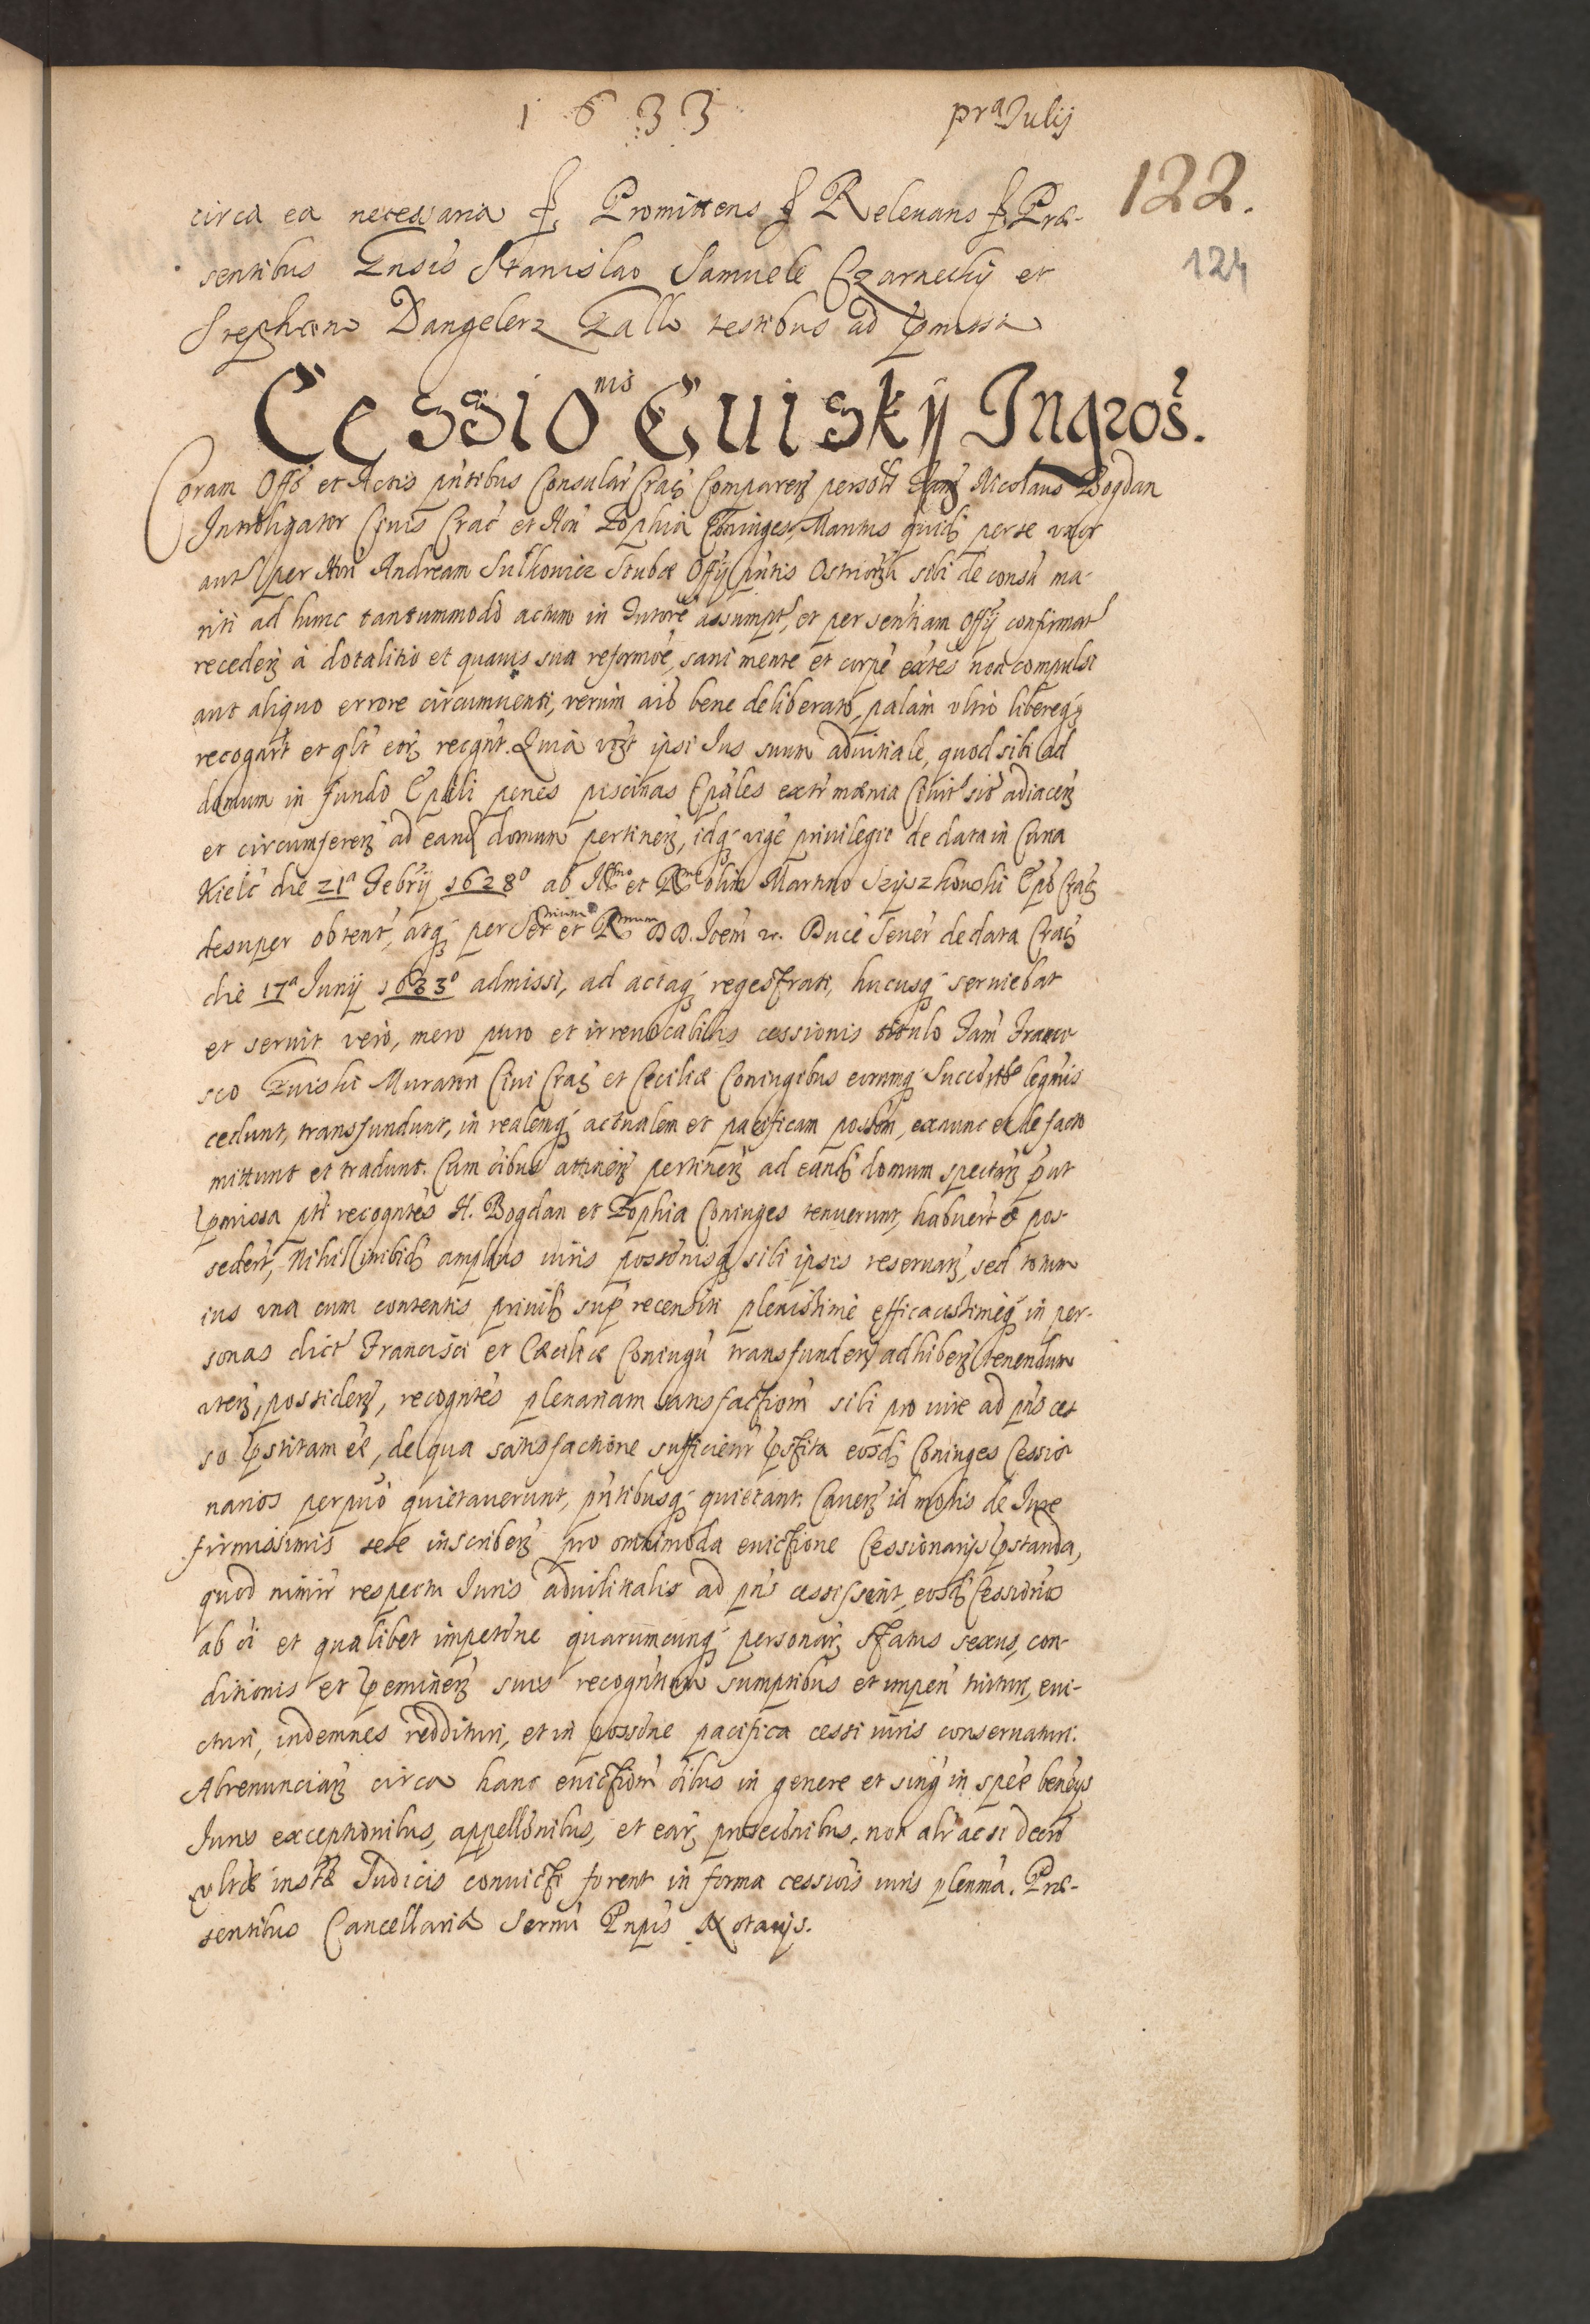 1633 pr^a Julij
122.
124
circa ea necessaria Promittens Relevans Præ-
sentibus Stanislao Samuele Czarnechij et
Stephano Dangelerz Gallo testibus ad pmissa
Cessio^nis Guiskij Ingros.
Coram Offo et Actis pntibus Consular Crac Comparen personlr Fam Nicolaus Bogdan
Introligator Civis Crac et Hon Zophia Coniuges, Maritus quid per se uxor
aut per Hon Andream Sulkowicz Stubæ Offij pntis Ostiariu sibi de consu ma-
riti ad hunc tantummodo actum in Tutore assumpt, et per sentiam Offij confirmat
receden à dotalitio et quavis sua reformoe, sani mente et corpe exntes non compulsi
aut aliquo errore circumuenti, verùm aio bene deliberato, palàm ultrò libereq
recogart et qlt eor recgnt. Quia ipsi Jus suum aduitiale, quod sibi ad
domum in fundo Epali penes piscinas Epales extr mænia Civit sit adiacen
et circumferen ad eand domum pertinen, idq vige privilegii de data in Curia
Kielc die 21^a Febrij 1628^o ab Ill^mo et R^mo olim Martino Szyszkowski Epo Crac
desuper obtent, atq per Ser^mum et R^mum DD. Joem Duce Sever de data Crac
die 17^a Junij 1633^o admissi, ad actaq regestrati, hucusq seruiebat
et seruit verò, mero puro et irreuocabilis cessionis titulo Fam Franci-
sco Guiski Muratori Ciui Crac et Ceciliæ Coniugibus eorumq Succoribs legmis
cedunt, transfundunt, in realemq actualem et pacificam possom, exnunc et de facto
mittunt et tradunt. Cum oibus attinen pertinen ad eand domum spectan put
pmissa pti recogntes N. Bogdan et Zophia Coniuges tenuerunt, habuert et pos-
sedert, Nihil inibid amplius iuris possonisq sibi ipsis reseruan, sed totum
ius una cum contentis privil sup recensiti plenissime efficacissimeq in per-
sonas dict Francisci et Cæciliæ Coniugu transfunden adhiben tenendum
uten, possiden, recogntes plenariam satisfactiom sibi pro iure ad pns ces-
so pstitam ee, de qua satisfactione sufficient pstita eosd Coniuges Cessio-
narios perpuò quietauerunt, pntibusq quietant. Cauen id modis de Jure
firmissimis sese inscriben pro omnimoda euictione Cessionarijs pstanda,
quod nimir respectu Juris aduitalitalis ad pns cessissent, eosd Cessiorios
ab oi et qualibet impetone quarumcunq personar status sexus, con-
ditionis et peminen suis recogntium sumptibus et impen tuturi, eui-
cturi, indemnes reddituri, et in possone pacifica cessi iuris conseruaturi.
Abrenuncian circa hanc euictiom oibus in genere et sing in spee benefijs
Juris exceptionibus, appellonibus, et ear prosecionibus, non alr ac si decro
ultæ instæ Judicis convicti forent in forma cessiois iuris plenma. Præ-
sentibus Cancellariæ Sermi Pnpis Notarijs.